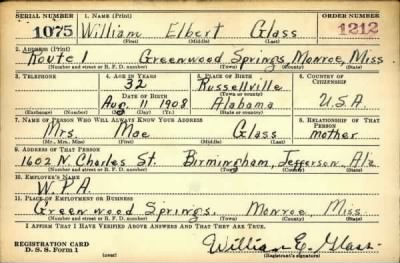 SERIAL NUMBER 1. NAME (Print) ORDER NUMBER
1075 William Elbert Glass 1212
(First) (Middle) (Last)
2. ADDRESS (Print)
Route 1 Greenwood Springs, Monroe, Miss
(Number and street or R. F. D. number) (Town) (County) (State)
3. TELEPHONE 4. AGE IN YEARS 5. PLACE OF BIRTH 6. COUNTRY OF CITIZENSHIP
32 Russellville
DATE OF BIRTH (Town or county)
Aug. 11 1908 Alabama U.S.A.
(Exchange) (Number) (Mo.) (Day) (Yr.) (State or country)
7. NAME OF PERSON WHO WILL ALWAYS KNOW YOUR ADDRESS 8. RELATIONSHIP OF THAT PERSON
Mrs. Mae Glass mother
(Mr., Mrs., Miss) (First) (Middle) (Last)
9. ADDRESS OF THAT PERSON
1602 N. Charles St. Birmingham, Jefferson, Ala
(Number and street or R. F. D. number) (Town) (County) (State)
10. EMPLOYER'S NAME
W.P.A.
11. PLACE OF EMPLOYMENT OR BUSINESS
Greenwood Springs, Monroe, Miss
(Number and street or R. F. D. number) (Town) (County) (State)
I AFFIRM THAT I HAVE VERIFIED ABOVE ANSWERS AND THAT THEY ARE TRUE.
REGISTRATION CARD William E. Glass
D. S. S. Form 1 (over) (Registrant's signature)